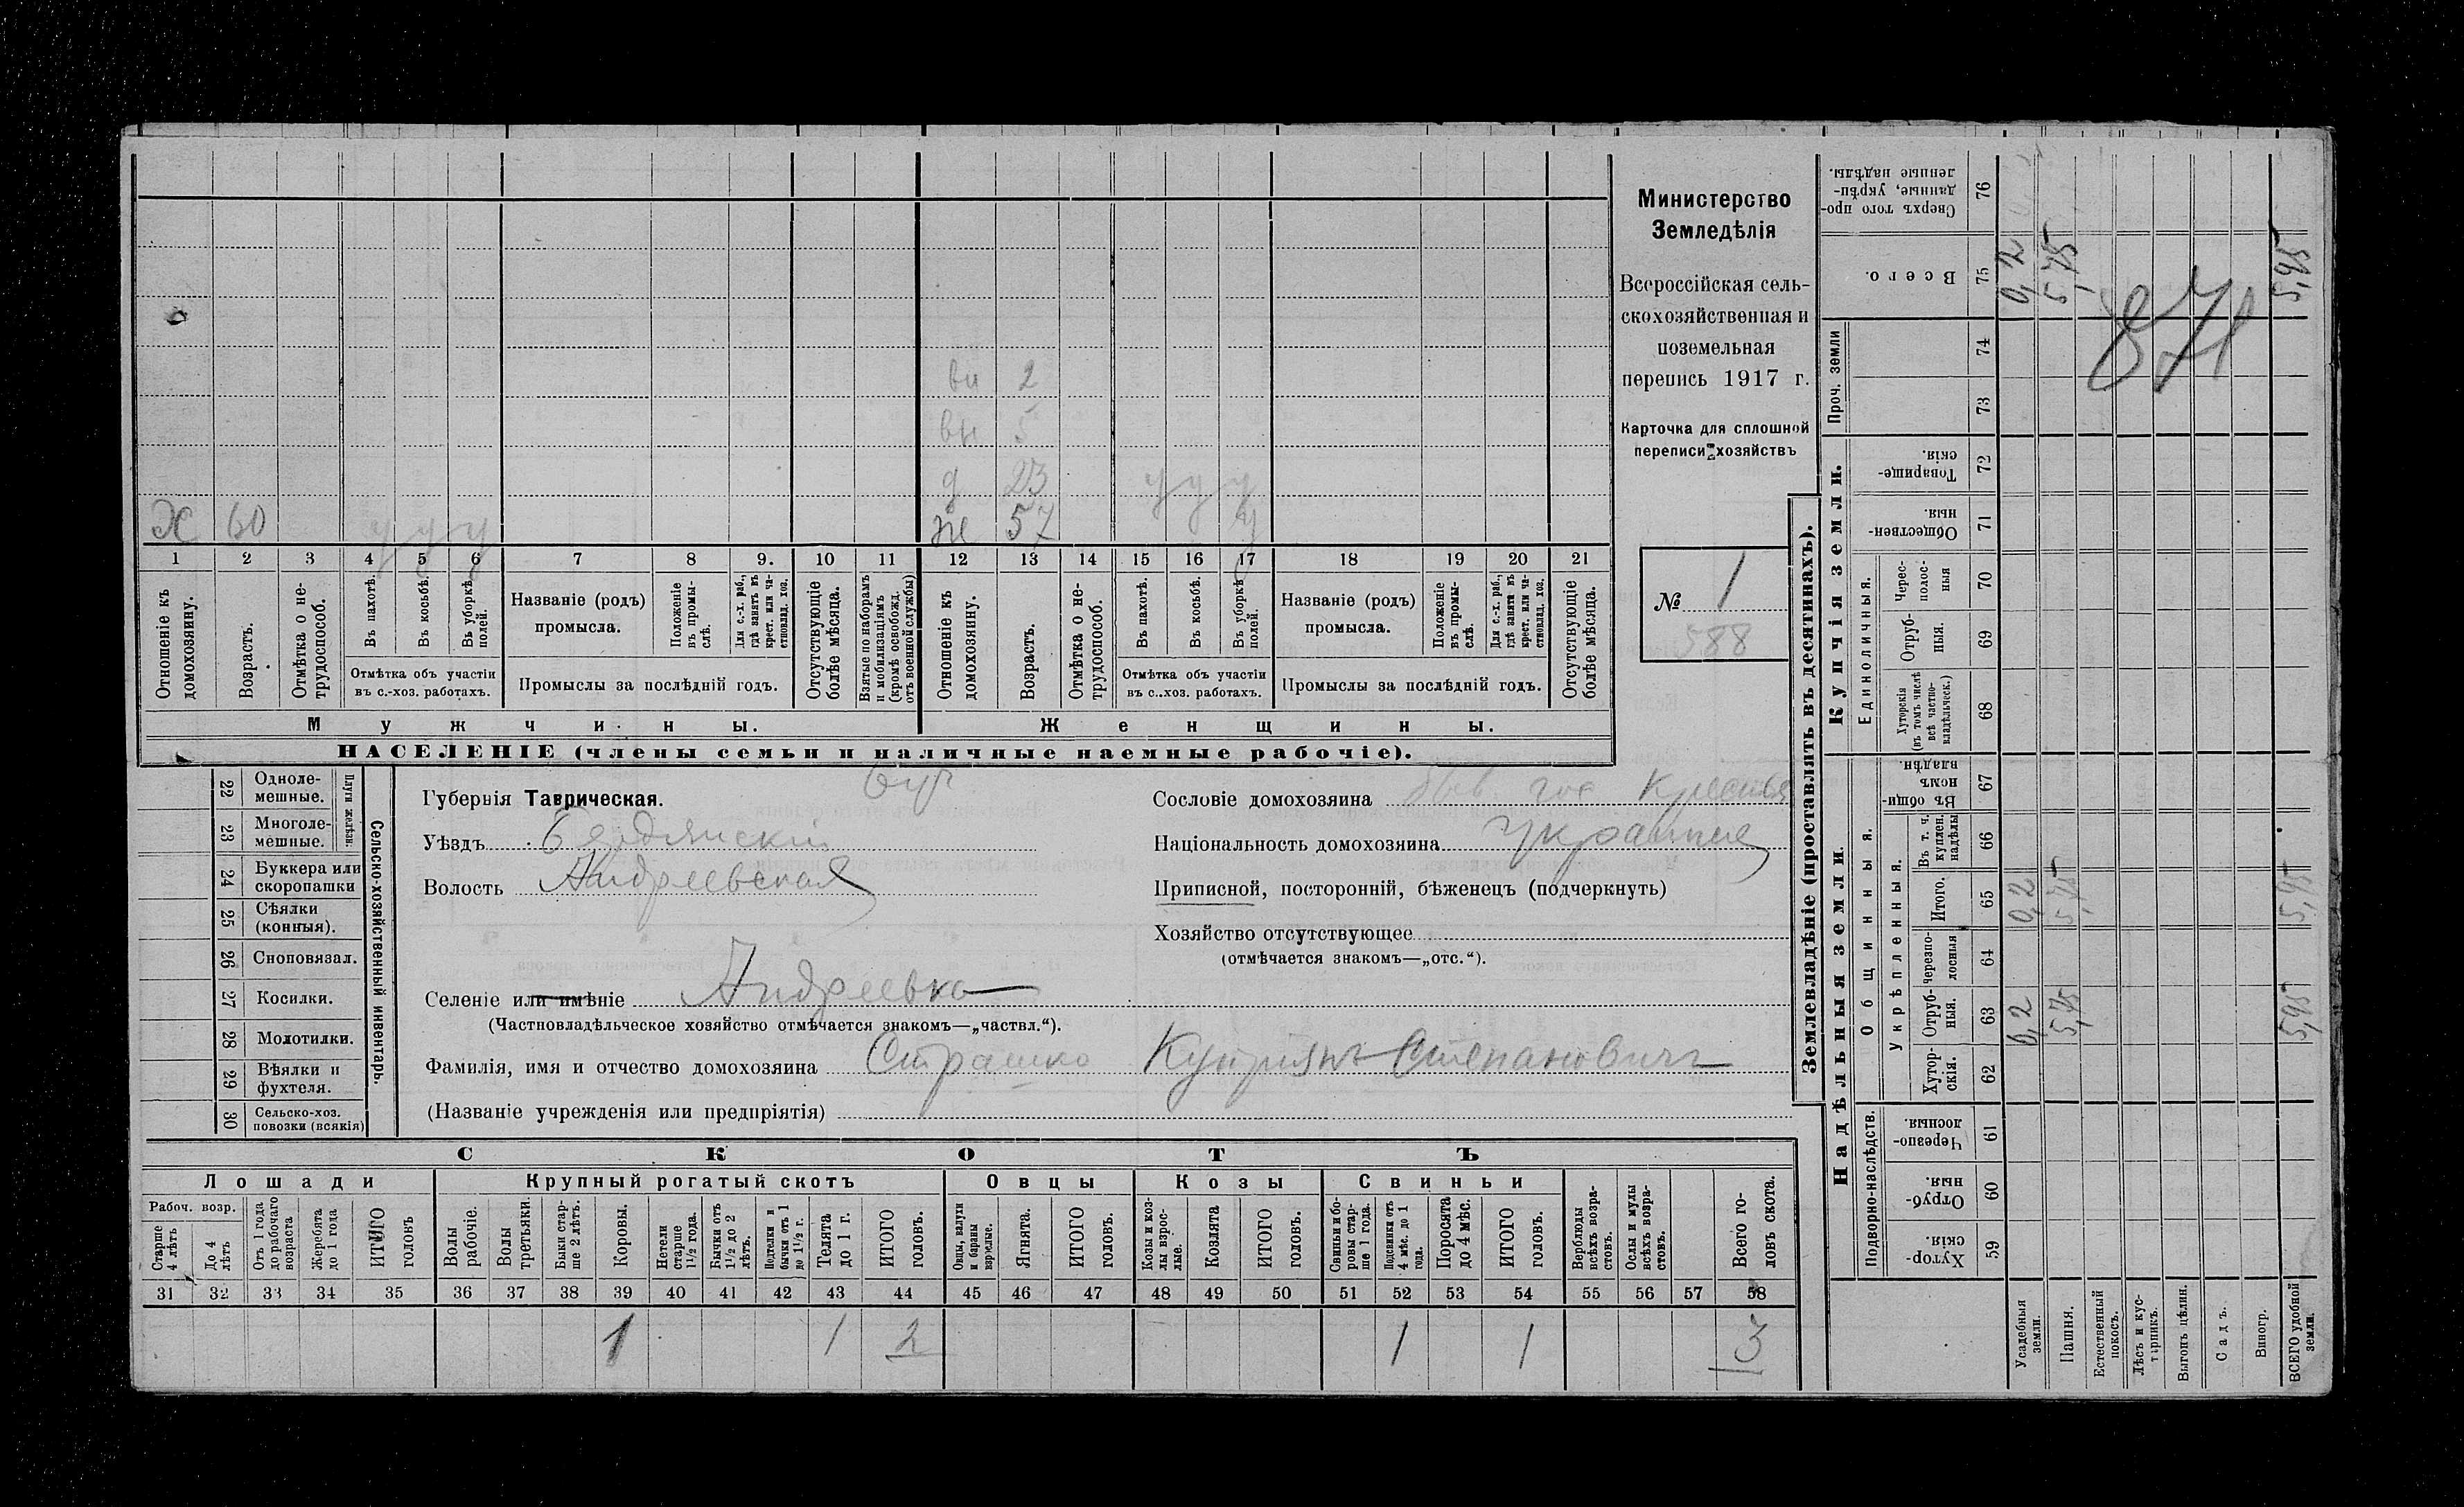 вн 2
вн 5
д 23 у у у
Х 60 у у у ж 57 у
1 2 3 4 5 6 7 8 9. 10 11 12 13 14 15 16 17 18 19 20 21
Отношеніе къ домохозяину.
Возрастъ.
Отмѣтка о не-
трудоспособ.
Въ пахотѣ.
Въ косьбѣ.
Въ уборкѣ
полей.
Отмѣтка объ участіи
въ с.-хоз. работахъ.
Названіе (родъ)
промысла.
Положеніе
въ промы-
слѣ.
Для с.-х. раб.,
гдѣ занятъ въ
крест. или ча-
стновлад. хоз.
Промыслы за послѣдній годъ.
Отсутствующіе
болѣе мѣсяца.
Взятые по наборамъ
и мобилизаціямъ
(кромѣ освобожд.
отъ военной службы)
Отношеніе къ
домохозяину.
Возрастъ.
Отмѣтка о не-
трудоспособ.
Въ пахотѣ.
Въ косьбѣ.
Въ уборкѣ
полей.
Отмѣтка объ участіи
въ с..хоз. работахъ.
Названіе (родъ)
промысла.
Положеніе
въ промы-
слѣ.
Для с.-х. раб.,
гдѣ занята въ
крест. или ча-
стновлад. хоз.
Промыслы за послѣдній годъ.
Отсутствующіе
болѣе мѣсяца.
Мужчины.
Женщины.
НАСЕЛЕНІЕ (члены семьи и наличные наемные рабочіе).
Министерство
Земледѣлія
Всероссійская сель-
скохозяйственная и
поземельная
перепись 1917 г.
Карточка для сплошной
переписи хозяйствъ
№ 1
588
22 Одноле-
мешные.
23 Многоле-
мешные.
Плуги желѣзн.
24 Буккера или
скоропашки
25 Сѣялки
(конныя).
26 Сноповязал.
27 Косилки.
28 Молотилки.
29 Вѣялки и
фухтеля.
30 Сельско-хоз.
повозки (всякія)
Сельско-хозяйственный инвентарь.
Губернія Таврическая.
Уѣздъ Бердянскій
Волость Андреевская
Селеніе или имѣніе Андреевка
(Частновладѣльческое хозяйство отмѣчается знакомъ—„частвл.“).
Фамилія, имя и отчество домохозяина Страшко Купріянъ Степановичъ
(Названіе учрежденія или предпріятія)
Сословіе домохозяина быв. гос крестья
Національность домохозяина украинец
Приписной, посторонній, бѣженецъ (подчеркнуть)
Хозяйство отсутствующее
(отмѣчается знакомъ—„отс.“).
СКОТЪ
Лошади
Крупный рогатый скотъ
Овцы
Козы
Свиньи
Рабоч. возр.
Старше
4 лѣтъ
До 4
лѣтъ
Отъ 1 года
до рабочаго
возраста
Жеребята
до 1 года
ИТОГО
головъ
Волы
рабочіе.
Волы
третьяки.
Быки стар-
ше 2 лѣтъ.
Коровы.
Нетели
старше
1½ года.
Бычки отъ
1½ до 2
лѣтъ.
Подтелки и
бычки отъ 1
до 1½ г.
Телята
до 1 г.
ИТОГО
головъ.
Овцы, валухи
и бараны
взрослые.
Ягнята.
ИТОГО
головъ.
Козы и коз-
лы взрос-
лые.
Козлята
ИТОГО
головъ.
Свиньи и бо-
ровы стар-
ше 1 года.
Подсвинки отъ
4 мѣс. до 1
года.
Поросята
до 4 мѣс.
ИТОГО
головъ.
Верблюды
всѣхъ возра-
стовъ.
Ослы и мулы
всѣхъ возра-
стовъ.
Всего го-
ловъ скота.
31 32 33 34 35 36 37 38 39 40 41 42 43 44 45 46 47 48 49 50 51 52 53 54 55 56 57 58
1 1 2 1 1 3
Землевладѣніе (проставлять въ десятинахъ).
Надѣльныя земли.
Купчія земли.
Проч. земли
Подворно-наслѣдств.
Общинныя.
Укрѣпленныя.
Единоличныя.
Сверхъ того про-
данные, укрѣп-
ленные надѣлы.
76
Всего.
75 0,2 5,75 5,95
74
73
871
Товарище-
скія.
72
Обществен-
ныя.
71
Черес-
полос-
ныя
70
Отруб-
ныя.
69
Хуторскія
(въ томъ числѣ
всѣ частно-
владѣльческ.)
68
Въ общи-
номъ
владѣн.
67
Въ т. ч.
куплен.
надѣлы
66
Итого.
65 0,2 5,75 5,95
Черезпо-
лосныя
64
Отруб-
ныя.
63 0,2 5,75 5,95
Хутор-
скія.
62
Черезпо-
лосныя.
61
Отруб-
ныя.
60
Хутор-
скія.
59
Усадебныя
земли.
Пашня.
Естественный
покосъ.
Лѣсъ и кус-
тарникъ.
Выгонъ цѣлин.
Садъ.
Виногр.
ВСЕГО удобной
земли.